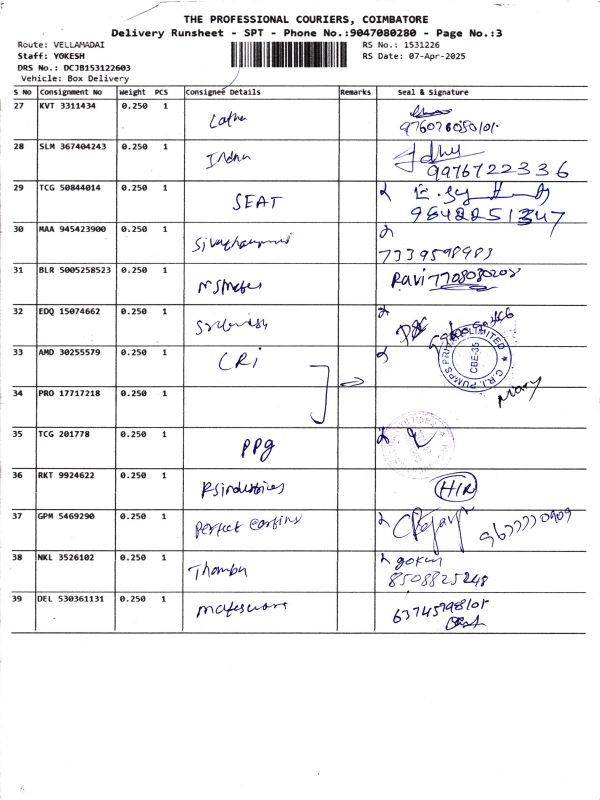 THE PROFESSIONAL COURIERS, COIMBATORE
Delivery Runsheet - SPT - Phone No.:9047080280 - Page No.:3
Route: VELLAMADAI
RS No.: 1531226
Staff: YOKESH
RS Date: 07-Apr-2025
DRS No.: DCJB153122603
Vehicle: Box Delivery
S No Consignment No Weight PCS Consignee Details Remarks Seal & Signature
27 KVT 3311434 0.250 1 Latha
28 SLM 367404243 0.250 1 Indhu
9976722336
29 TCG 50844014 0.250 1 SEAT
9842251347
30 MAA 945423900 0.250 1
7339598983
31 BLR 5005258523 0.250 1 Ravi 7708080208
32 EDQ 15074662 0.250 1
33 AMD 30255579 0.250 1 CRI
C.R.I. PUMPS PRIVATE LIMITED
CBE-35
34 PRO 17717218 0.250 1 Mary
35 TCG 201778 0.250 1 PPG
36 RKT 9924622 0.250 1 RS industries HIR
37 GPM 5469290 0.250 1 Perfect
38 NKL 3526102 0.250 1 Thambu gokul
8508825248
39 DEL 530361131 0.250 1